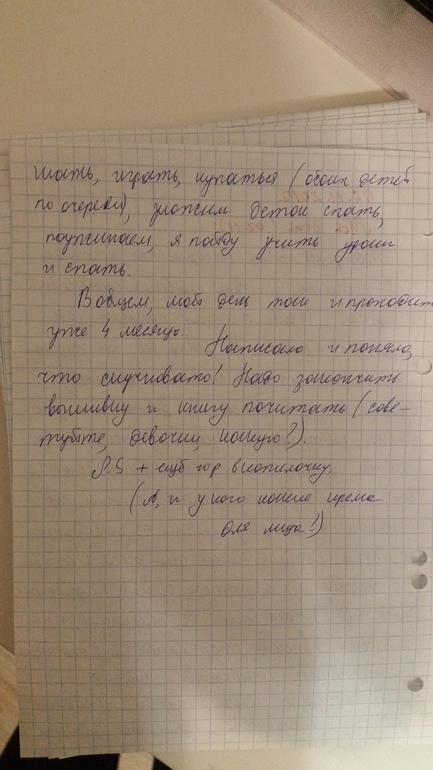 шать, играть, купаться (обоих детей
по очереди), уложим деток спать,
поужинаем, я пойду учить уроки
и спать.
В общем, мой день так и проходит
уже 4 месяца.
Написала и поняла,
что скучновато! Надо закончить
вышивку и книгу почитать (сове-
туйте, девочки, какую?).
P.S + ещё гор в копилочку.
(А, и у кого какие крема
для лица!)